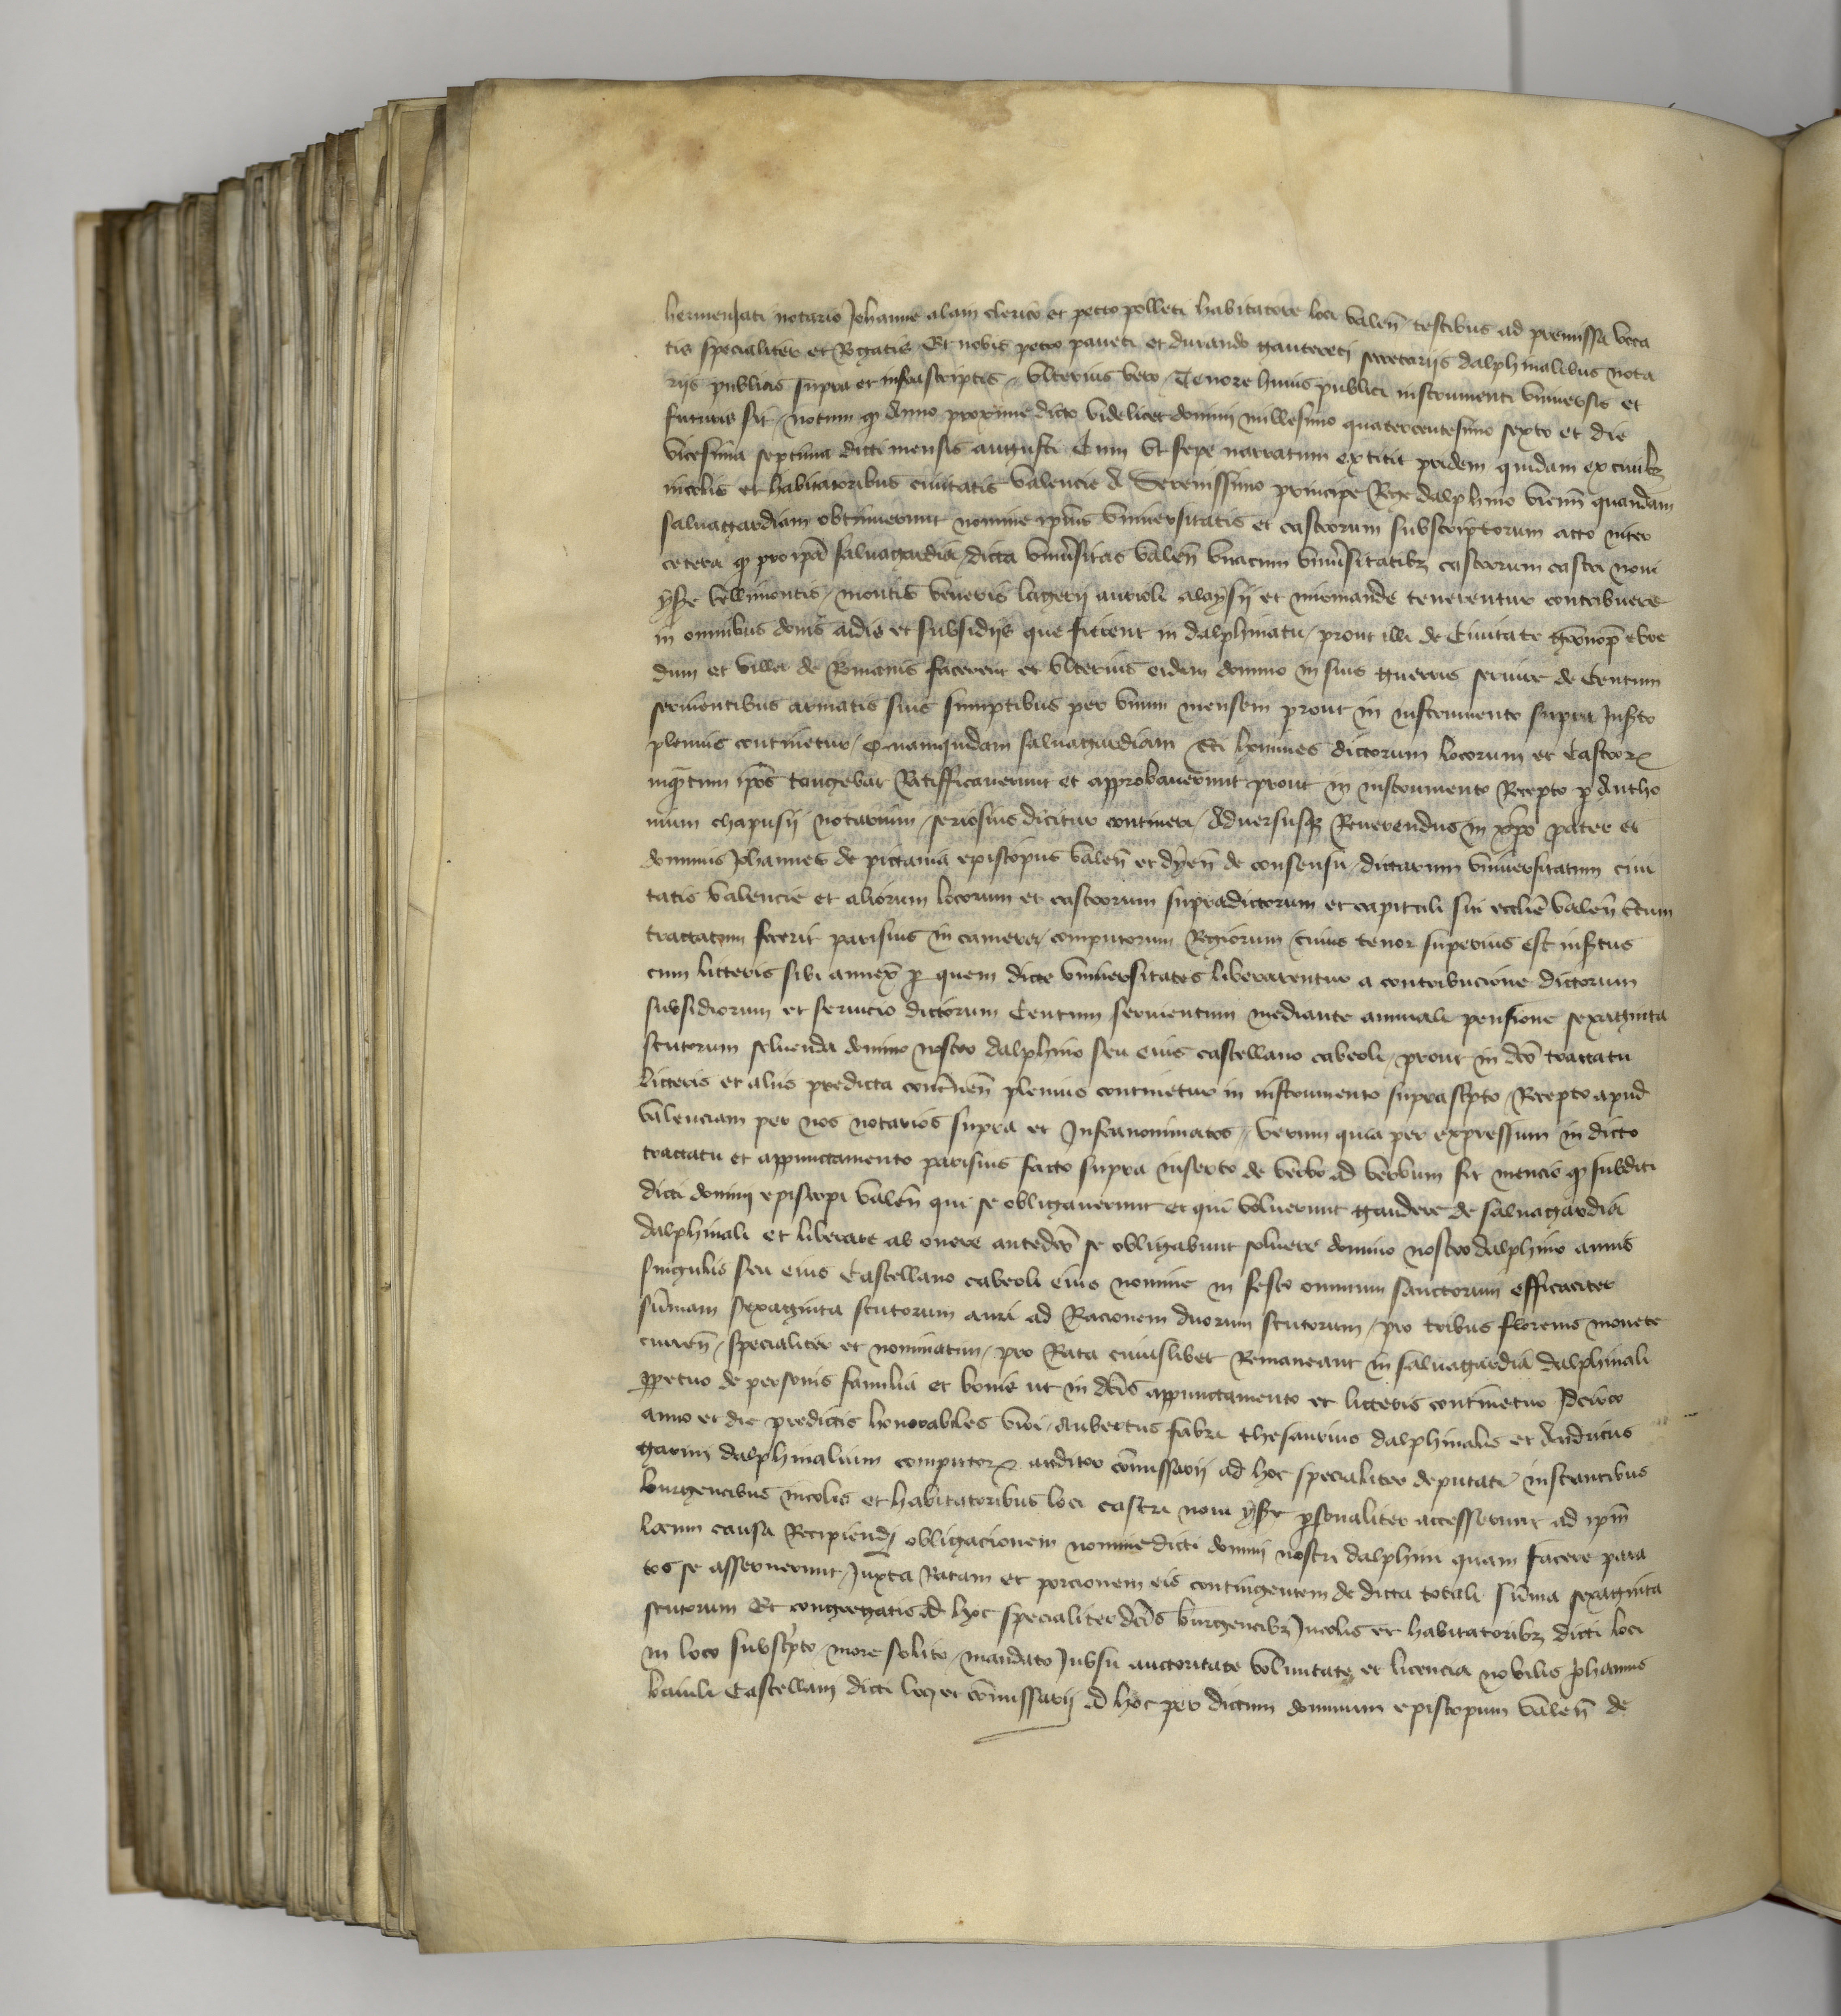 hermentati notario Johanne alain clerico et petro polleti habitatore loci valeñ testibus ad premissa voca
tis specialiter et Rogatis Et nobis petro paneti et durando gautereti secretariis dalphinalibus nota
riis publicis supra et infrascriptis Ulterius vero Tenore huius publici instrumenti universis et
futuris fit notum q̃ Anno proxime dicto videlicet domini millesimo quatercentesimo sexto et die
vicesima septima dicti mensis augusti Cum ut sepe narratum extitit pridem quidam ex civibȝ
incolis et habitatoribus civitatis valencie A Serenissimo principe Rege dalphino vieñ quandam
salvagardiam obtinuerunt nomine ip̃ius universitatis et castrorum subscriptorum acto inter
cetera q̃ pro ip̃a salvagardia dicta uniṽsitas valeñ unacum uniṽsitatibȝ castrorum castri novi
ysẽ bellimontis montis veneris lagerii aurioli alaysii et mirmande tenerentur contribuere
in omnibus donis aidis et subsidiis que fierent in dalphinatu prout illi de Civitate gr̃onop̃ ebre
dum et villa de Romanis facerent et ulterius eidem domino in suis guerris servire de Centum
servientibus armatis suis sumptibus per unum mensem prout in instrumento supra Insẽto
plenius continetur Quamquidam salvagardiam Et homines dictorum locorum et Castrorꝝ
inq̃tum ip̃os tangebat Ratifficaverunt et approbaverunt prout in instrumento Recepto ꝑ Antho
nium chapusii notarium seriosius dicitur contineri Adversusqȝ Reverendus in xp̃o pater et
dominus Johannes de pictavia episcopus valeñ et dyeñ de consensu dictarum universitatum civi
tatis valencie et aliorum locorum et castrorum supradictorum et capituli sui eccl̃ie valeñ Ctum
tractatum fecerit parisius in camera computorum Regiorum cuius tenor superius est insẽtus
cum litteris sibi annex̃ ꝑ quem dicte universitates liberarentur a contribucione dictorum
subsidiorum et servicio dictorum Centum servientium mediante annuali pensione sexaginta
scutorum solvenda domino nostro dalphino seu eius castellano cabeoli prout in dc̃o tractatu
litteris et aliis predicta contineñ plenius continetur in instrumento suprascpto Recepto apud
valenciam per nos notarios supra et Infranominatos verum quia per expressum in dicto
tractatu et appunctamento parisius facto supra inserto de verbo ad verbum fit mencio q̃ subditi
dicti domini episcopi valeñ qui se obligaverunt et qui voluerunt gaudere de salvagardia
dalphinali et liberari ab onere antedc̃o se obligabunt solvere domino nostro dalphino annis
singulis seu eius Castellano cabeoli eius nomine in festo omnium sanctorum efficaciter
sũmam sexaginta scutorum auri ad Racionem duorum scutorum pro tribus florenis monete
curreñ specialiter et nominatim pro Rata cuiuslibet Remaneant in salvagardia dalphinali
ꝑpetuo de personis familia et bonis ut in dc̃is appunctamento et litteris continetur Idcirco
anno et die predictis honorabiles viri Aubertus fabri thesaurius dalphinalis et Andricus
garini dalphinalium computorꝝ auditor com̃issarii ad hoc specialiter deputati instantibus
burgencibus incolis et habitatoribus loci castri novi ysẽ ꝑsonaliter accesserunt ad ip̃m
locum causa Recipiendi obligacionem nomine dicti domini nostri dalphini quam facere para
tos se asseruerunt Juxta Ratam et porcionem eis contingentem de dicta totali sum̃a sexaginta
scutorum Et congregatis ad hoc specialiter dc̃is burgencibȝ Incolis et habitatoribȝ dicti loci
in loco subscpto more solito mandato Jussu auctoritate voluntate et licencia nobilis Johannis
baiuli Castellani dicti loci et com̃issarii ad hoc per dictum dominum episcopum valeñ de